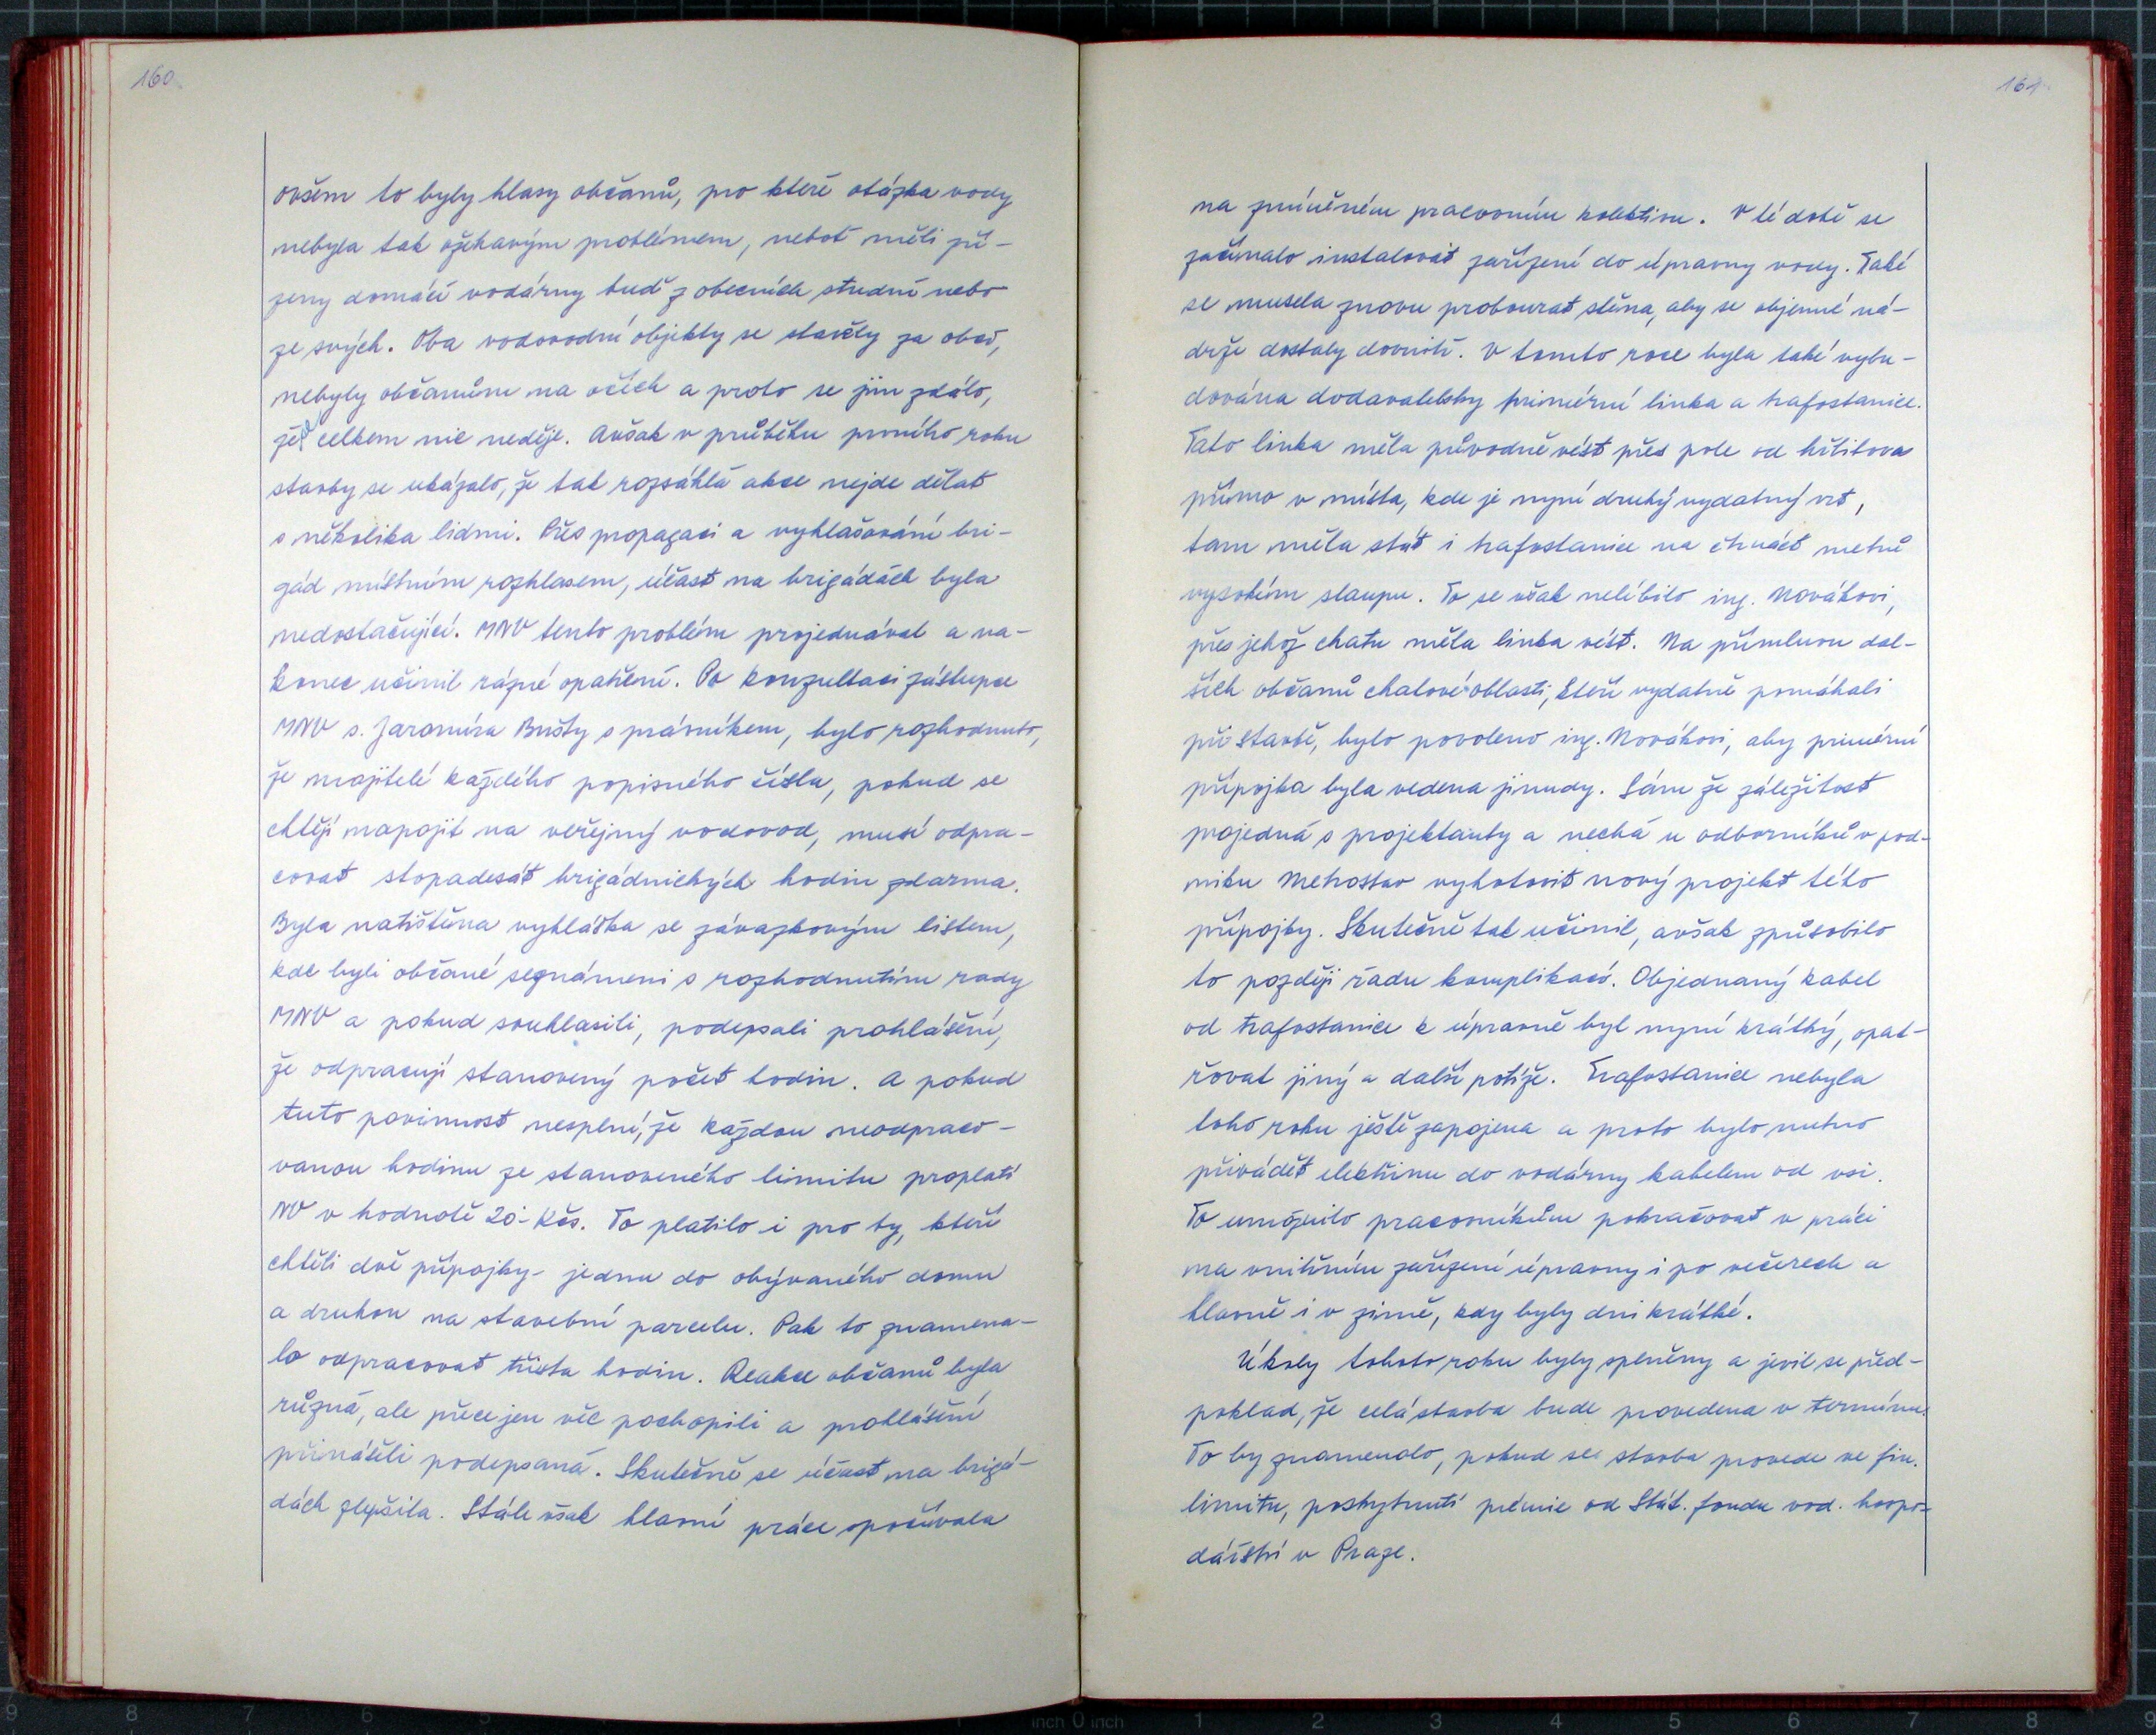 160
ovšem to byly hlasy občanů, pro které otázka vody
nebyla tak ožehavým problémem, neboť měli zří-
zeny domácí vodárny buď z obecních studní nebo
ze svých. Oba vodovodní objekty se stavěly za obcí,
nebyly občanům na očích a proto se jim zdálo,
že celkem nic neděje. Avšak v průběhu prvního roku
stavby se ukázalo, že tak rozsáhlá akce nejde dělat
s několika lidmi. Přes propagaci a vyhlašování bri-
gád místním rozhlasem, účast na brigádách byla
nedostačující. MNV tento problém projednával a na-
konec učinil rázné opatření. Po konzultaci zástupce
MNV s. Jaromíra Bušty s právníkem, bylo rozhodnuto,
že majitelé každého popisného čísla, pokud se
chtějí napojit na veřejný vodovod, musí odpra-
covat stopadesát brigádnických hodin zdarma.
Byla natištěna vyhláška se závazkovým listem,
kde byli občané seznámeni s rozhodnutím rady
MNV a pokud souhlasili, podepsali prohlášení,
že odpracují stanovený počet hodin. A pokud
tuto povinnost nesplní, že každou neodpraco-
vanou hodinu ze stanoveného limitu proplatí
NV v hodnotě 20.- Kčs. To platilo i pro ty, kteří
chtěli dvě přípojky - jednu do obývaného domu
a druhou na stavební parcelu. Pak to znamena-
lo odpracovat třista hodin. Reakce občanů byla
různá, ale přece jen věc pochopili a prohlášení
přinášeli podepsaná. Skutečně se účast na brigá-
dách zlepšila. Stále však hlavní práce spočívala
161
na zmíněném pracovním kolektivu. V té době se
začínalo instalovat zařízení do úpravny vody. Také
se musela znovu probourat stěna, aby se objemné ná-
drže dostaly dovnitř. V tomto roce byla také vybu-
dována dodavatelsky primérní linka a trafostanice.
Tato linka měla původně vést přes pole od
přímo v místa, kde je nyní druhý vydatný vrt,
tam měla stát i trafostanice na čtrnáct metrů
vysokém sloupu. To se však nelíbilo ing. Novákovi,
přes jehož chatu měla linka vést. Na přímluvu dal-
ších občanů chatové oblasti, kteří vydatně pomáhali
při stavbě, bylo povoleno ing. Novákovi, aby primérní
přípojka byla vedena jinudy. Sám že záležitost
projedná s projektanty a nechá u odborníků v pod-
niku Metrostav vyhotovit nový projekt této
přípojky. Skutečně tak učinil, avšak způsobilo
to později řadu komplikací. Objednaný kabel
od trafostanice k úpravně byl nyní krátký, opat-
řovat jiný a další potíže. Trafostanice nebyla
toho roku ještě zapojena a proto bylo nutno
přivádět elektřinu do vodárny kabelem od vsi.
To umožnilo pracovníkům pokračovat v práci
na vnitřním zařízení úpravny i po večerech a
hlavně i v zimě, kdy byly dni krátké.
Úkoly tohoto roku byly splněny a jevil se před-
poklad, že celá stavba bude provedena v termínu.
To by znamenalo, pokud se stavba provede ve fin.
limitu, poskytnutí prémie od Stát. fondu vod. hospo-
dářství v Praze.